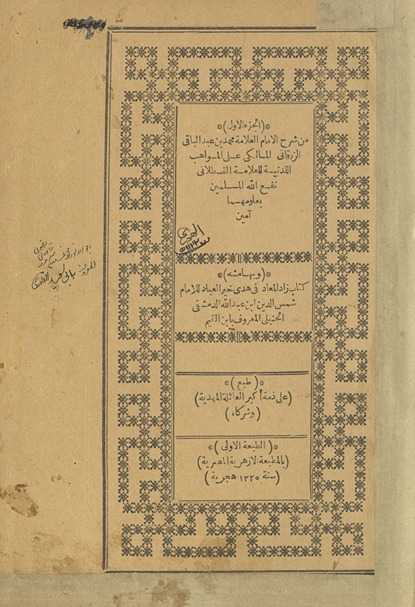 *(الجزء الاول)*
من شرح الامام العلامة محمد بن عبد الباقى
الزرقانى المالكى على المواهب
اللدنية للعلامة القسطلانى
نفع الله المسلمين
بعلومهما
آمين
*(وبهامشه)*
كتاب زاد المعاد فى هدى خير العباد للامام
شمس الدين ابن عبد الله الدمشقى
الحنبلى المعروف بابن القيم
*(طبع)*
(على ذمة أكبر العائلة المهدية)
(وشركاه)
*(الطبعة الاولى)*
(بالمطبعة الازهرية المصرية)
(سنة ١٣٢٥ هجرية)